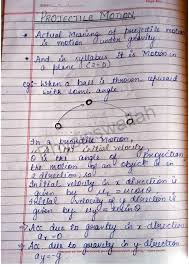 PROJECTILE MOTION
• Actual Meaning of projectile motion
is motion under gravity
• And in syllabus it is Motion in
a plane (2-D)
eg:- When a ball is thrown upward
with some angle
In a projectile Motion,
initial velocity
θ is the angle of Projection
the motion of an object in
2 direction, so
Initial velocity in x direction is
given by ux = ucosθ
Initial velocity of y direction is
given by uy = usinθ
→ Acc due to gravity in x direction
ax = 0
→ Acc due to gravity in y direction
ay = -g